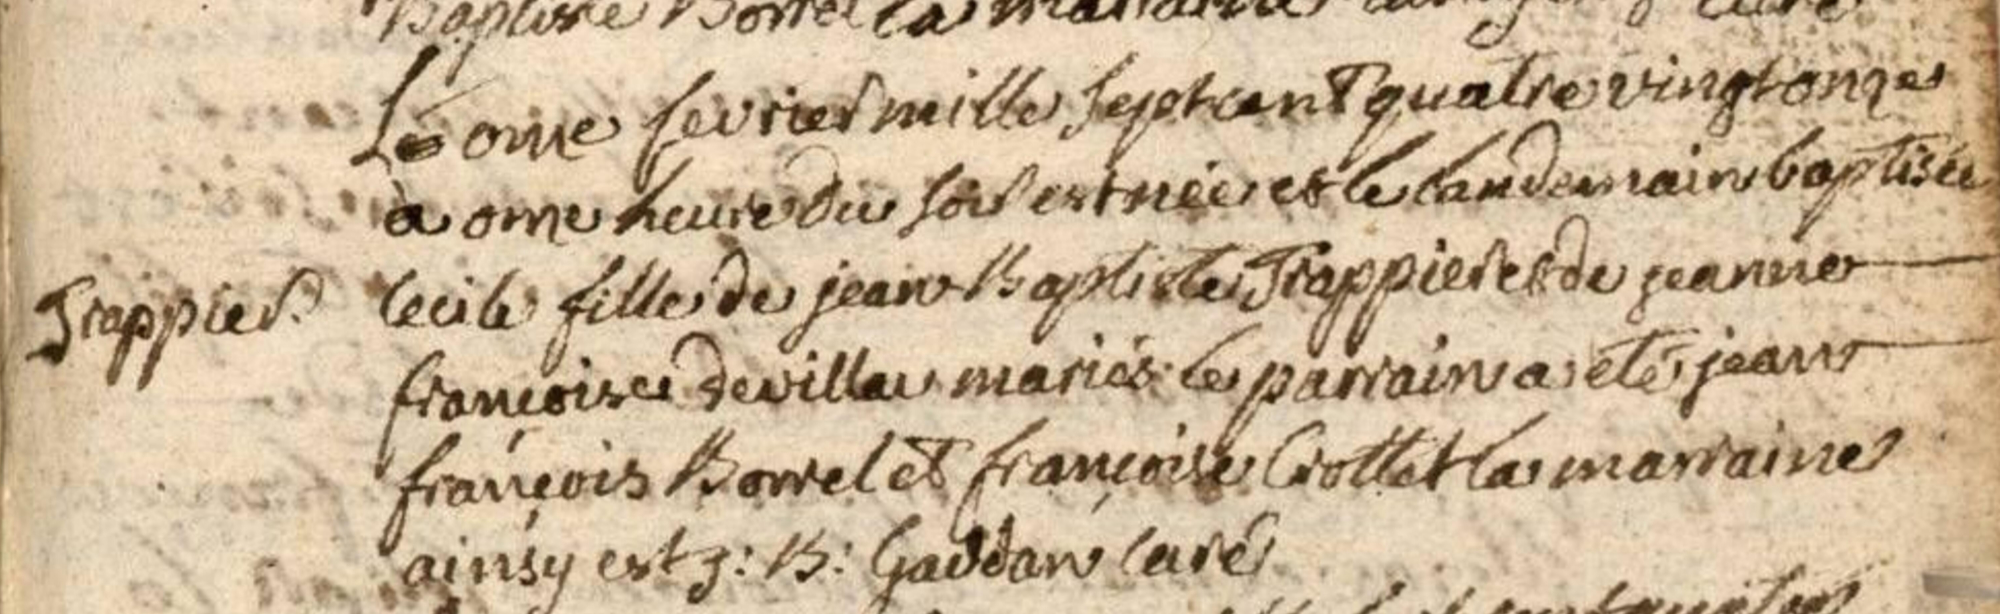 Baptiste Borrel la marraine
Le onze fevrier mille sept cent quatre vingt onze
à onze heure du soir est née et le landemain baptisée
Trappier. Cecile fille de jean Baptiste Trappier et de jeanne
françoise devilla mariés le parrain a eté jean
françois Borrel et françoise Crottet la marraine
ainsy est j: B: Gaddan curé